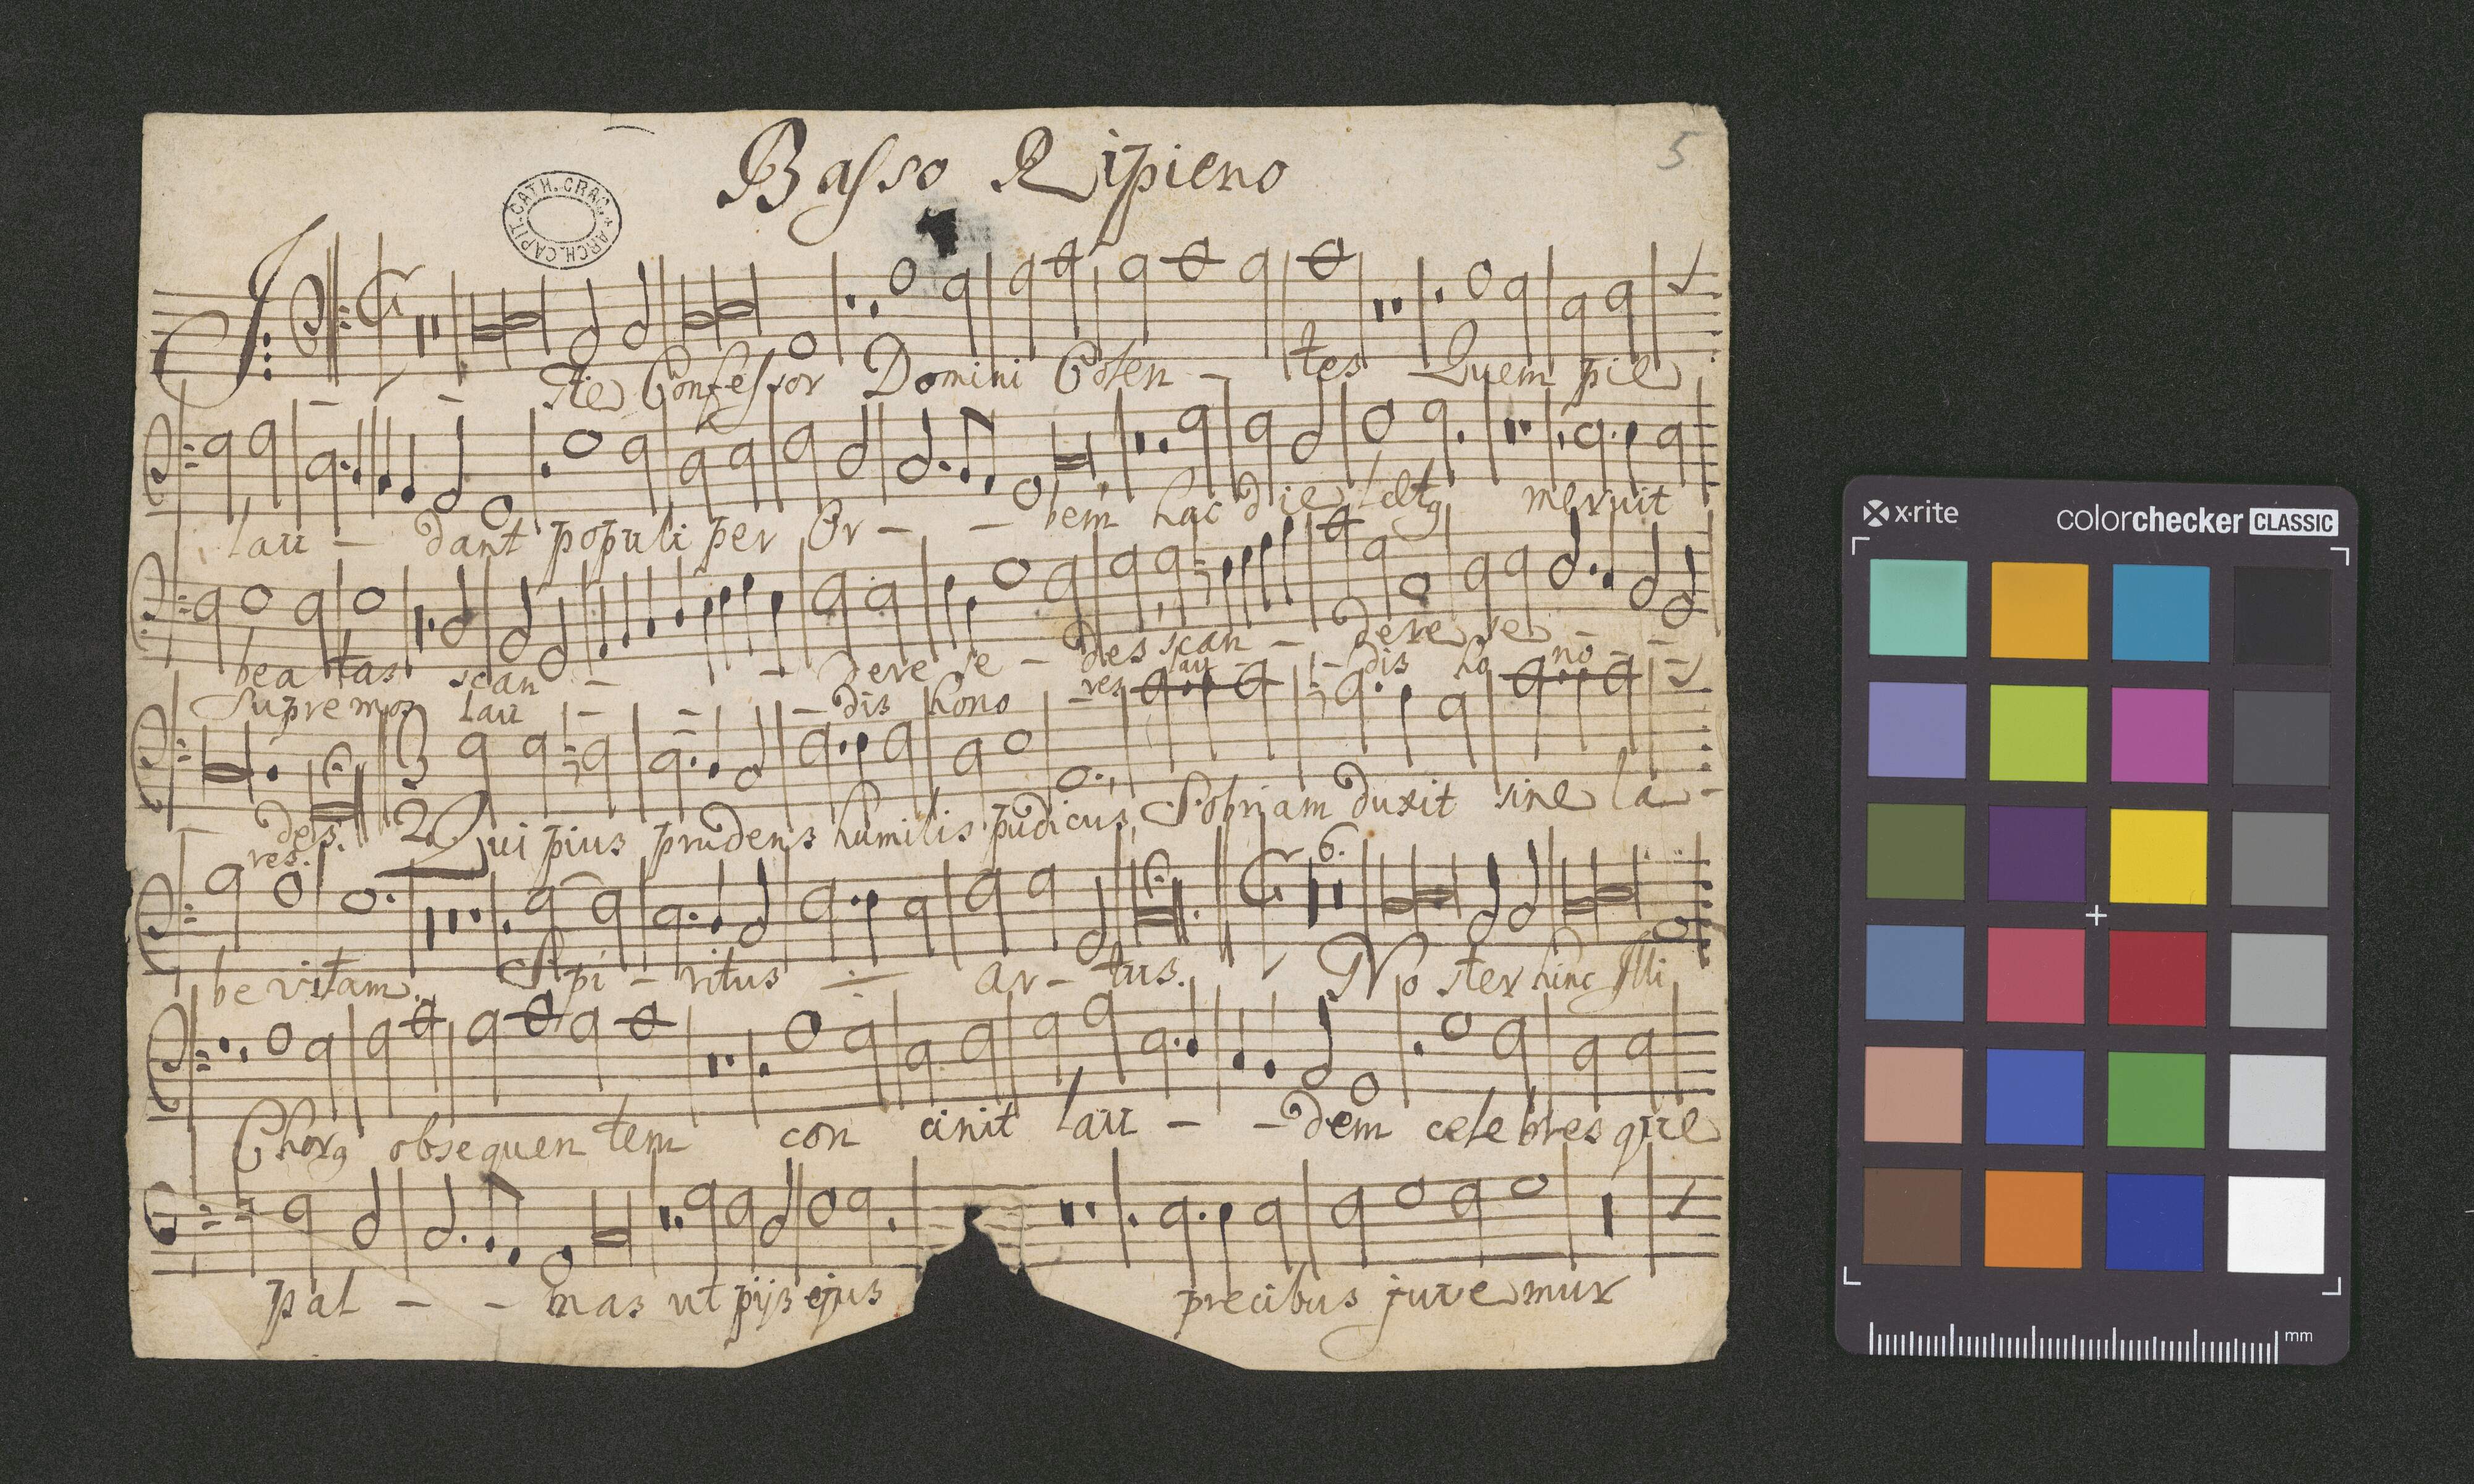 Basso Ripieno
5
ARCH. CAPIT. CATH. CRAC.
J: - - Ste Confessor Domini Colen - tes Quem pie
lau - dant populi per Or - - bem hac die lætq meruit
beatas scan - - dere se - des scan - dere se - -
Supremos lau - - - dis hono - res lau - - dis ho no - -
des. 3 2 Qui pius prudens humilis pudicus, Sobriam duxit sine la -
res. 6.
be vitam. Spi - ritus - ar - tus. No ster hinc Illi
Chorq obsequen tem con cinit lau - - dem celebres que
pal - - mas ut pijs ejus precibus juve mur
x-rite
colorchecker CLASSIC
mm